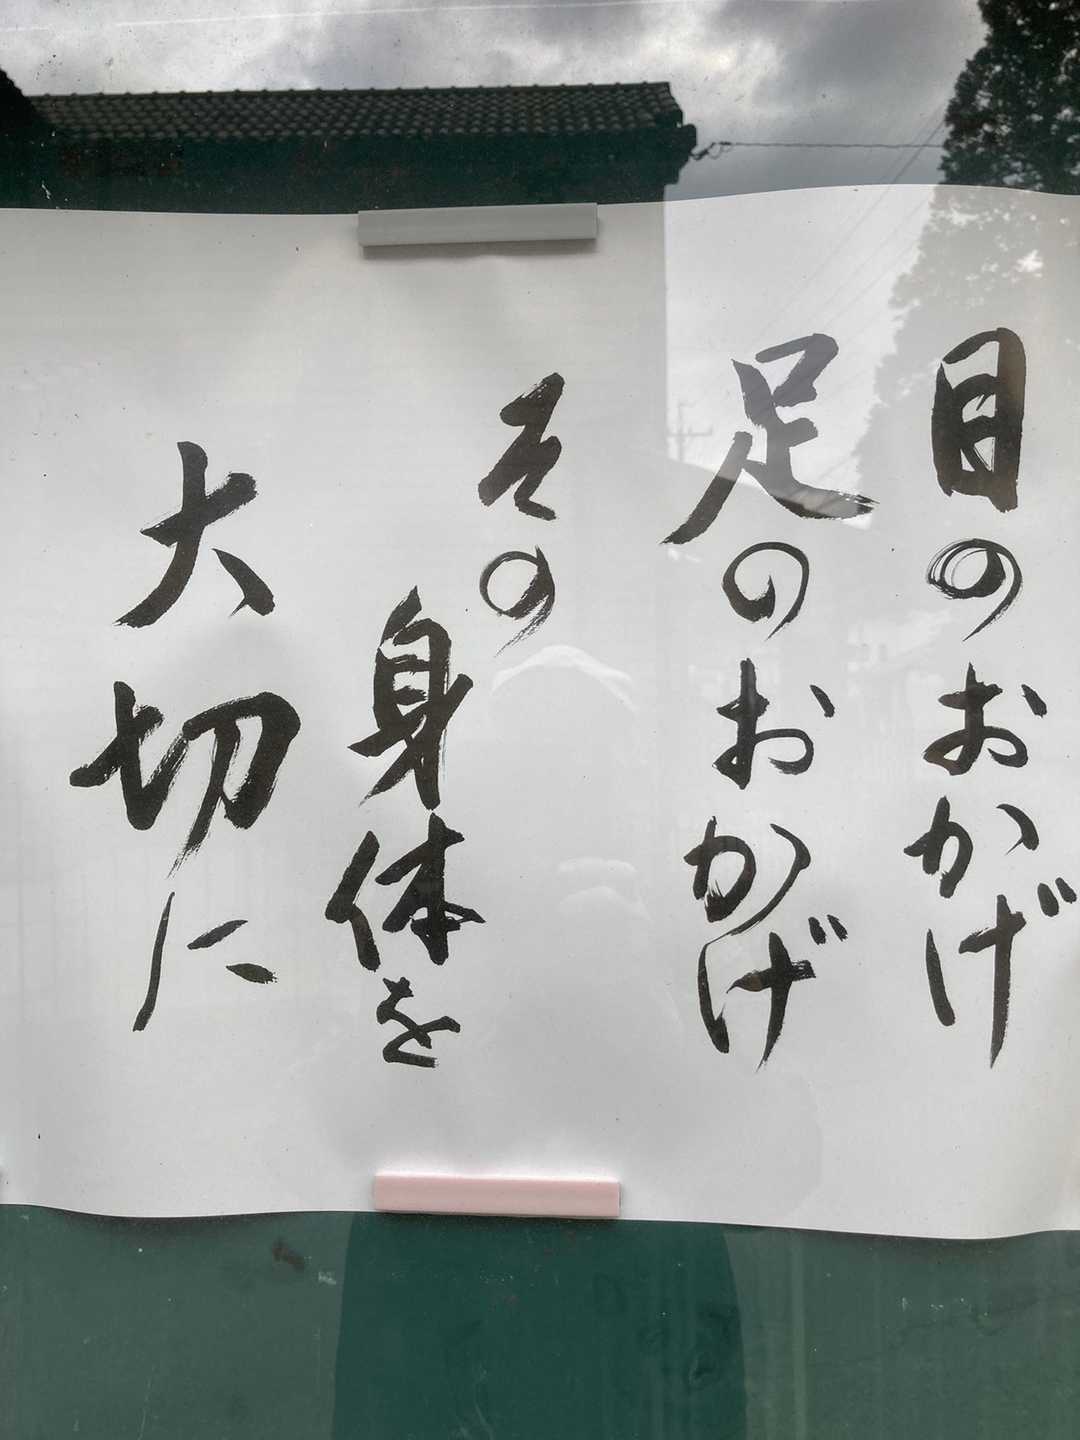 目のおかげ
足のおかげ
その
身体を
大切に